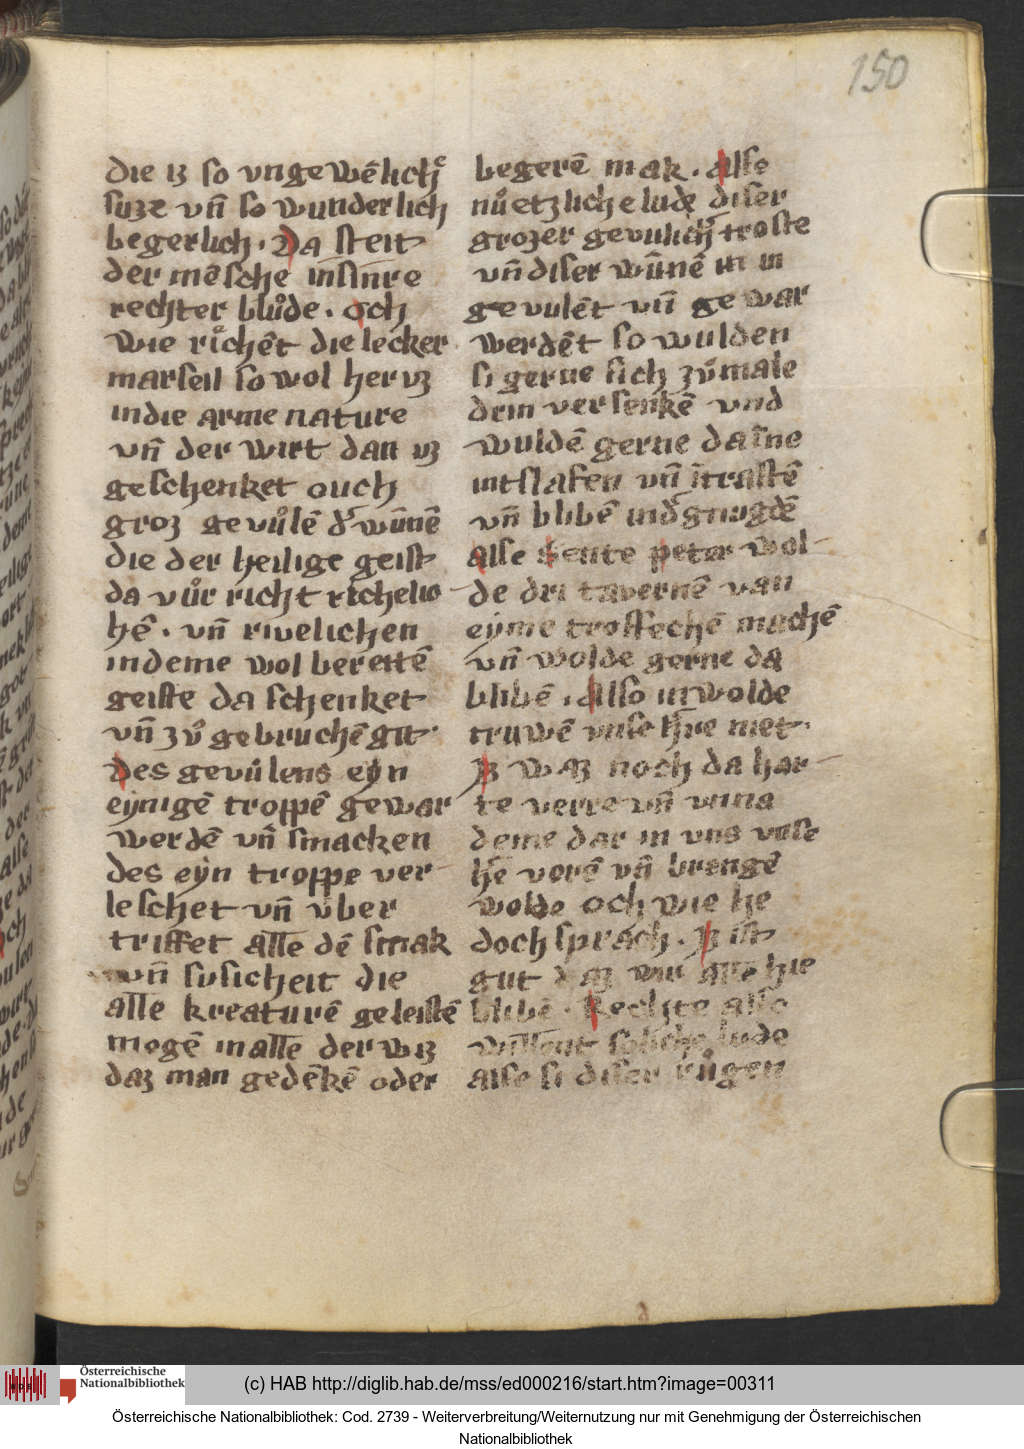 150
die iz so vngewēlichͤ
suze vn̄ so wunderlich
begerlich. Da steit
der mēsche in sinre
rechter blůde. Och
wie rͦichēt die lecker
marseil so wol her vz
in die arme nature
vn̄ der wirt dan iz
geschenket ouch
groz gevůlē d' wūnē
die der heilige geist
da vůr richt richelic-
hē. vn̄ rivelichen
in deme wol bereitē
geiste da schenket
vn̄ zů gebruchē git.
Des gevůlens eyn
eynigē troppē gewar
werdē vn̄ smacken
des eyn troppe ver-
leschet vn̄ vber
triffet alle dē smak
vn̄ susicheit die
alle kreaturē geleistē
mogē in alle der wiz
daz man gedēkē oder
begerē mak. also
nůetzliche lude diser
grozer gevulich' troste
vn̄ diser wūnē in in
gevulēt vn̄ gewar
werdēt so wulden
si gerne sich zůmale
dein versenkē vnd
wuldē gerne da īne
intslafen vn̄ ītrastē
vn̄ blibē in d' gnugdē
alse sente peter wol-
de dri tavernē van
eyme troffechē machē
vn̄ wolde gerne da
blibē. also in wolde
truwē vnse h're niet.
Iz waz noch da har-
te verre vn̄ vnna
deme dar in vns vnse
h'e vorē vn̄ brengē
wolde och wie he
doch sprach. Iz ist
gut daz wir alle hie
blibē. Rechte also
wullent soliche lude
alse si diser růgen
(c) HAB http://diglib.hab.de/mss/ed000216/start.htm?image=00311
Österreichische
Nationalbibliothek
Österreichische Nationalbibliothek: Cod. 2739 - Weiterverbreitung/Weiternutzung nur mit Genehmigung der Österreichischen
Nationalbibliothek